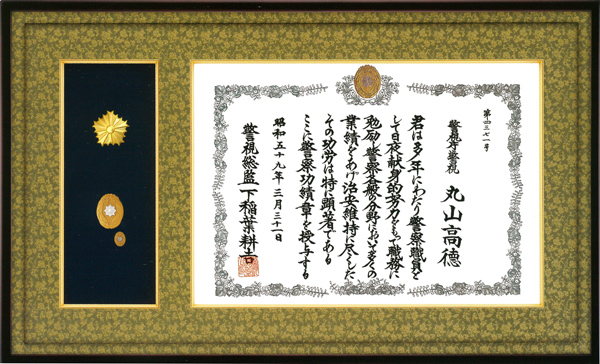 第四三七一号
警視庁警視
丸山高德
君は多年にわたり警察職員と
して日夜献身的努力をもって職務に
勉励し警察各般の分野において多くの
業績をあげ治安維持に尽くした
その功労は特に顕著である
ここに警察功績章を授与する
昭和五十九年二月三十一日
警視総監下稲葉耕吉